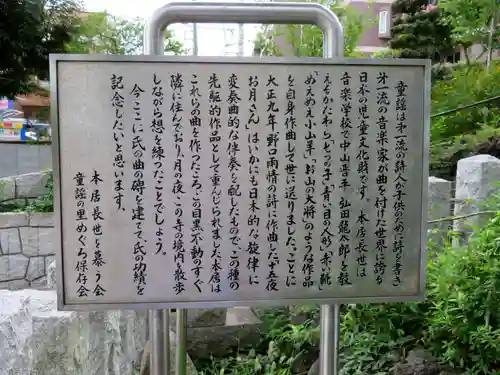 童謡は第一流の詩人が子供のために詩を書き
第一流の音楽家が曲を付けた世界に誇る
日本の児童文化財です。本居長世は
音楽学校で中山晋平、弘田龍太郎らを教
えるかたわら「七つの子」「青い目の人形」「赤い靴」
「めえめえ小山羊」「お山の大将」のような作品
を自身作曲して世に送りました。ことに
大正九年、野口雨情の作詩した「十五夜
お月さん」はいかにも日本的な旋律に
変奏曲的な伴奏を配したもので、この種の
先駆的作品として高く評価されます。本居は
これらの曲を作ったころ、この目黒不動のすぐ
隣に住んでおり、月の夜、この寺の境内を散歩
しながら想を練ったことでしょう。
今ここに氏の曲の碑を建てて、氏の功績を
記念したいと思います。
本居長世を慕う会
童謡の里めぐろ保存会